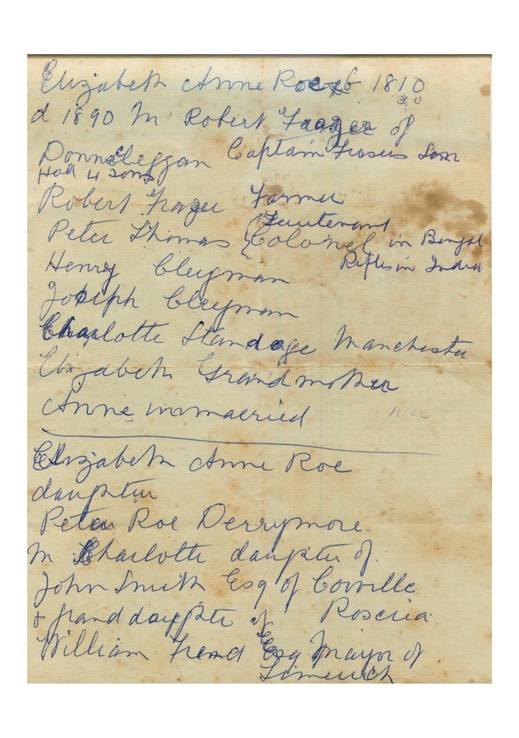 Elizabeth Anne Roe b 1810
d 1890 M Robert Frazer of
Donnaleggan Captain Frasers Son
Had 4 sons
Robert Frazer Farmer
Peter Thomas { Lieutenant
Colonel in Bengal
Rifles in India
Henry Cleyman
Joseph Cleyman
Charlotte Standage Manchester
Elizabeth Grandmother
Anne unmarried
Elizabeth Anne Roe
daughter
Peter Roe Derrymore
M Charlotte daughter of
John Smith Esq of Corville
& granddaughter of Roscrea
William Frend Esq Mayor of
Limerick